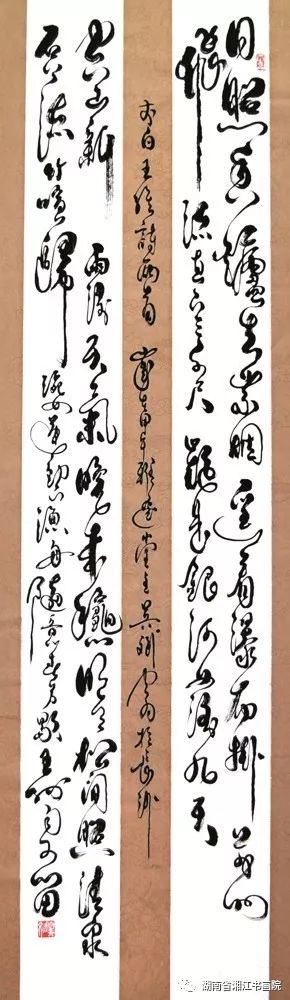 日照香爐生紫烟遥看瀑布掛前川
飛流直下三千尺疑是銀河落九天
李白王維詩兩首 歲在甲午 堂主 於長沙
空山新雨後天氣晚來穐明月松間照清泉
石上流竹喧歸浣女蓮動下漁舟隨意春芳歇王孫自可留
湖南省湘江书画院